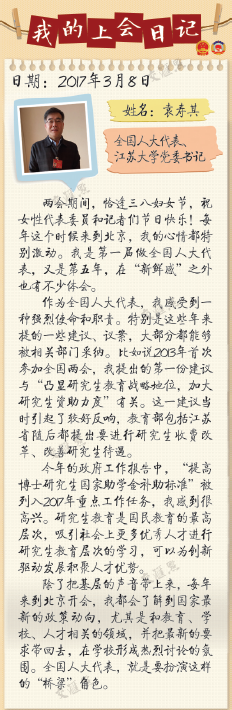 我的上会日记
日期：2017年3月8日
姓名：袁寿其
全国人大代表、
江苏大学党委书记
两会期间，恰逢三八妇女节，祝
女性代表委员和记者们节日快乐！每
年这个时候来到北京，我的心情都特
别激动。我是第一届做全国人大代
表，又是第五年，在“新鲜感”之外
也有不少体会。
作为全国人大代表，我感受到一
种强烈使命和职责。特别是这些年来
提的一些建议、议案，大部分都能够
被相关部门采纳。比如说2013年首次
参加全国两会，我提出的第一份建议
与“凸显研究生教育战略地位，加大
研究生资助力度”有关。这一建议当
时引起了较好反响，教育部包括江苏
省随后都提出要进行研究生收费改
革、改善研究生待遇。
今年的政府工作报告中，“提高
博士研究生国家助学金补助标准”被
列入2017年重点工作任务，我感到很
高兴。研究生教育是国民教育的最高
层次，吸引社会上更多优秀人才进行
研究生教育层次的学习，可以为创新
驱动发展积聚人才优势。
除了把基层的声音带上来，每年
来到北京开会，我都会了解到国家最
新的政策动向，尤其是和教育、学
校、人才相关的领域，并把最新的要
求带回去，在学校形成热烈讨论的氛
围。全国人大代表，就是要扮演这样
的“桥梁”角色。